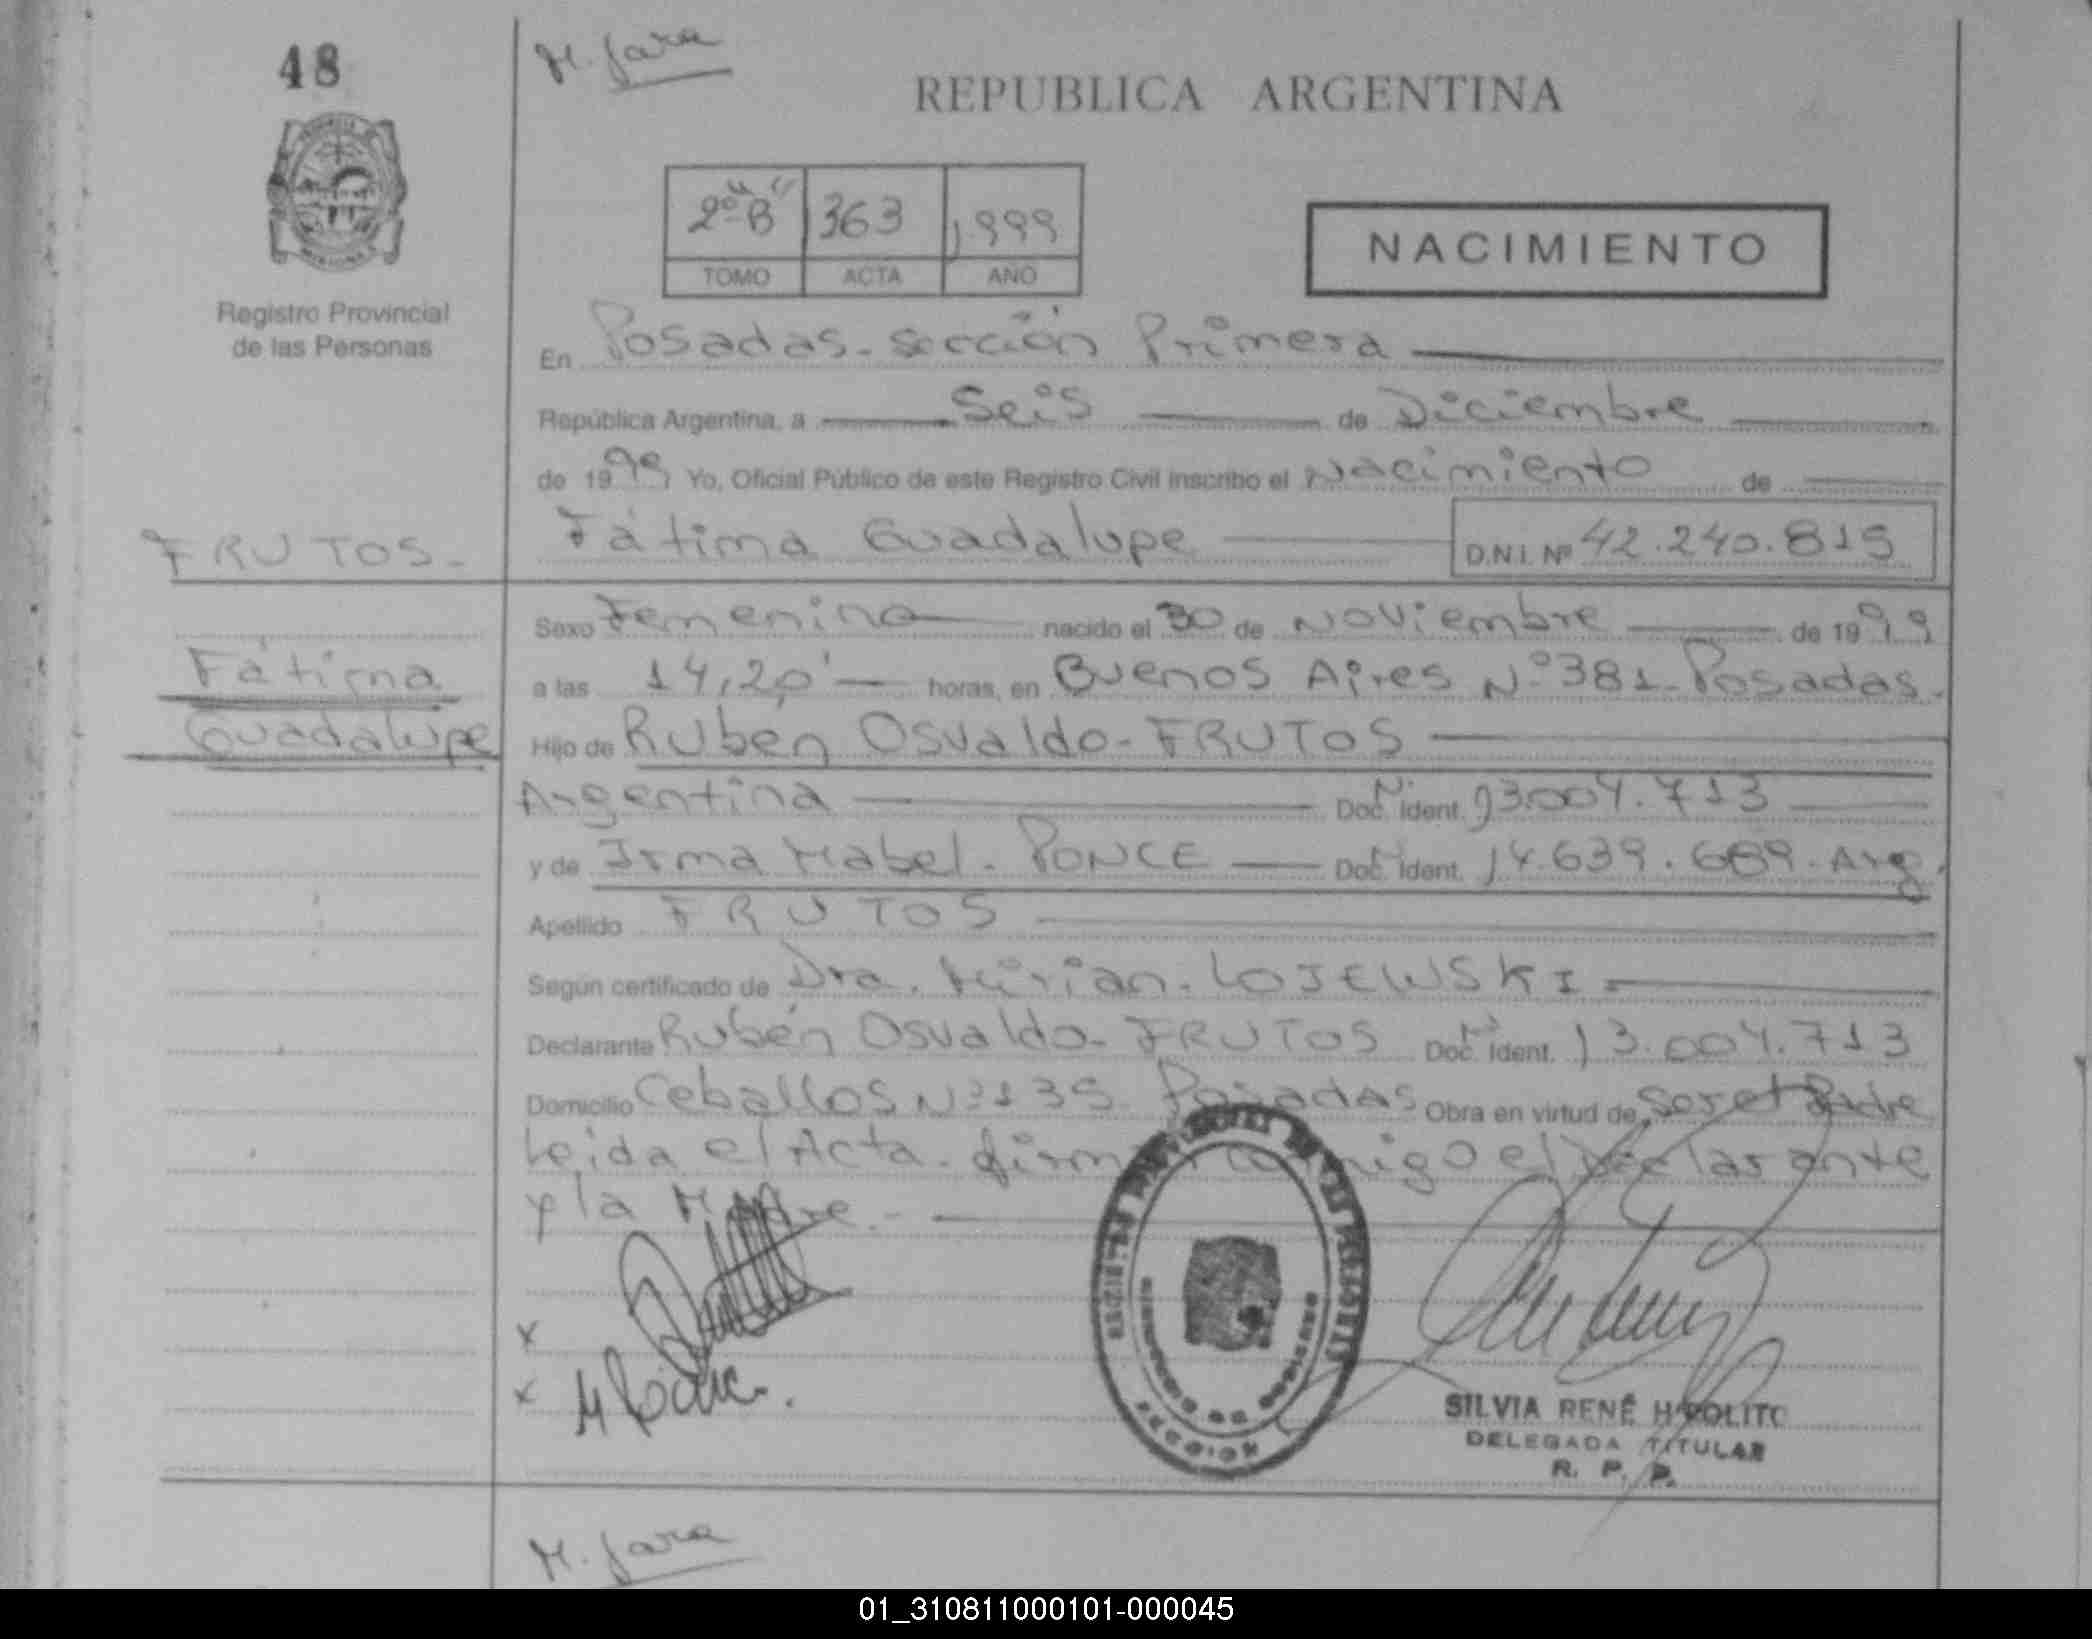 48
M. Jara
REPUBLICA ARGENTINA
2º "B" 363 1.999
TOMO ACTA AÑO
NACIMIENTO
Registro Provincial
de las Personas
En Posadas - sección Primera
República Argentina, a Seis de Diciembre
de 1999 Yo, Oficial Público de este Registro Civil inscribo el Nacimiento de
Fátima Guadalupe D.N.I. Nº 42.240.815
FRUTOS -
Fátima
Guadalupe
Sexo Femenino nacido el 30 de Noviembre de 1999
a las 14,20' horas, en Buenos Aires Nº 381 - Posadas -
Hijo de Rubén Osvaldo - FRUTOS
Argentina Doc. Ident. 13.004.713
y de Irma Mabel - PONCE Doc. Ident. 14.639.689 - Arg.
Apellido FRUTOS
Según certificado de Dra. Mirian - LOJEWSKI -
Declarante Rubén Osvaldo - FRUTOS Doc. Ident. 13.004.713
Domicilio Ceballos Nº 135 Posadas Obra en virtud de ser el Padre
Leida el Acta - firman conmigo el Declarante
y la Madre. -
x
x
SILVIA RENÉ HIPOLITO
DELEGADA TITULAR
R. P. P.
M. Jara
01_310811000101-000045